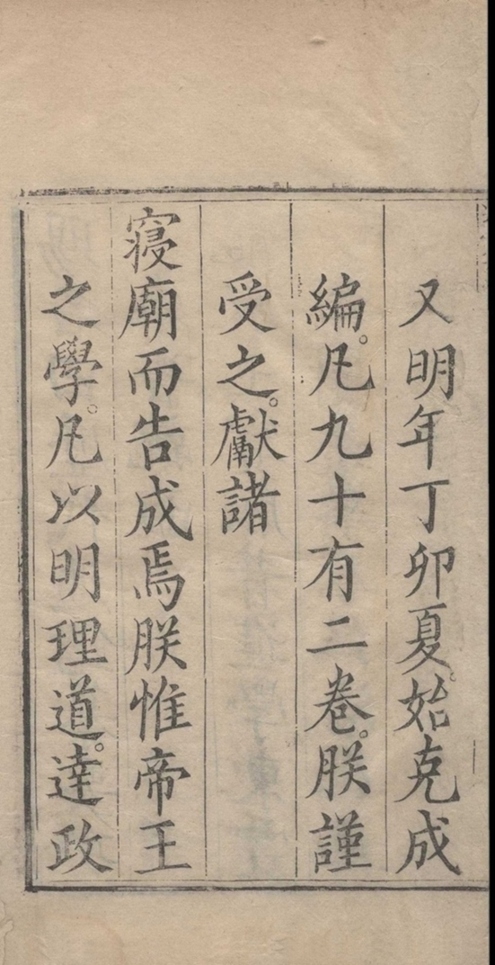 又明年丁卯夏。始克成
編。凡九十有二卷。朕謹
受之。獻諸
寢廟而告成焉朕惟帝王
之學。凡以明理道。達政